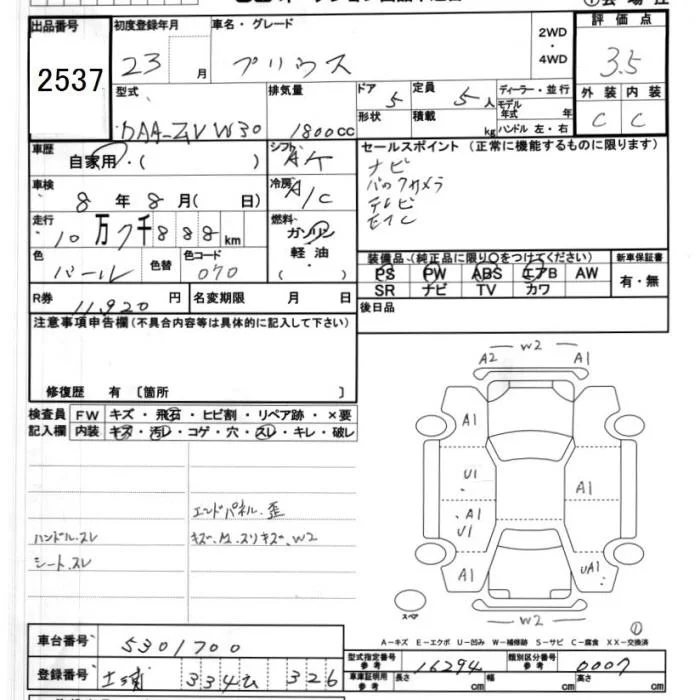 出品番号 初度登録年月 車名・グレード 2WD・4WD 評価点
2537 23 月 プリウス 3.5
型式 排気量 ドア 5 定員 5人 ディーラー・並行 外装 内装
DAA-ZVW30 1800cc 形状 積載 kg モデル年式 年 C C
ハンドル 左・右
車歴 自家用・( ) シフト AT セールスポイント (正常に機能するものに限ります)
ナビ
車検 8年8月( 日) 冷房 A/C バックカメラ
テレビ
走行 10万7千888km 燃料 ガソリン ETC
軽油・( )
色 パール 色替 色コード 070 装備品 (純正品に限り○をつけてください) 新車保証書
PS PW ABS エアB AW 有・無
R券 11,920円 名変期限 月 日 SR ナビ TV カワ
注意事項申告欄(不具合内容等は具体的に記入して下さい) 後日品
修復歴 有 〔箇所 〕
検査員 FW キズ・飛石・ヒビ割・リペア跡・×要
記入欄 内装 キズ・汚レ・コゲ・穴・スレ・キレ・破レ
エンドパネル.歪
ハンドル.スレ
シート.スレ
W2
A2 A1
A1
U1
A1
A1
U1
A1 UA1
スペア
W2
①
A-キズ E-エクボ U-凹み W-補修跡 S-サビ C-腐食 XX-交換済
車台番号 5301700
型式指定番号 参考 16294 類別区分番号 参考 0007
登録番号 334 326 車庫証明用 参考 長さ cm 幅 cm 高さ cm